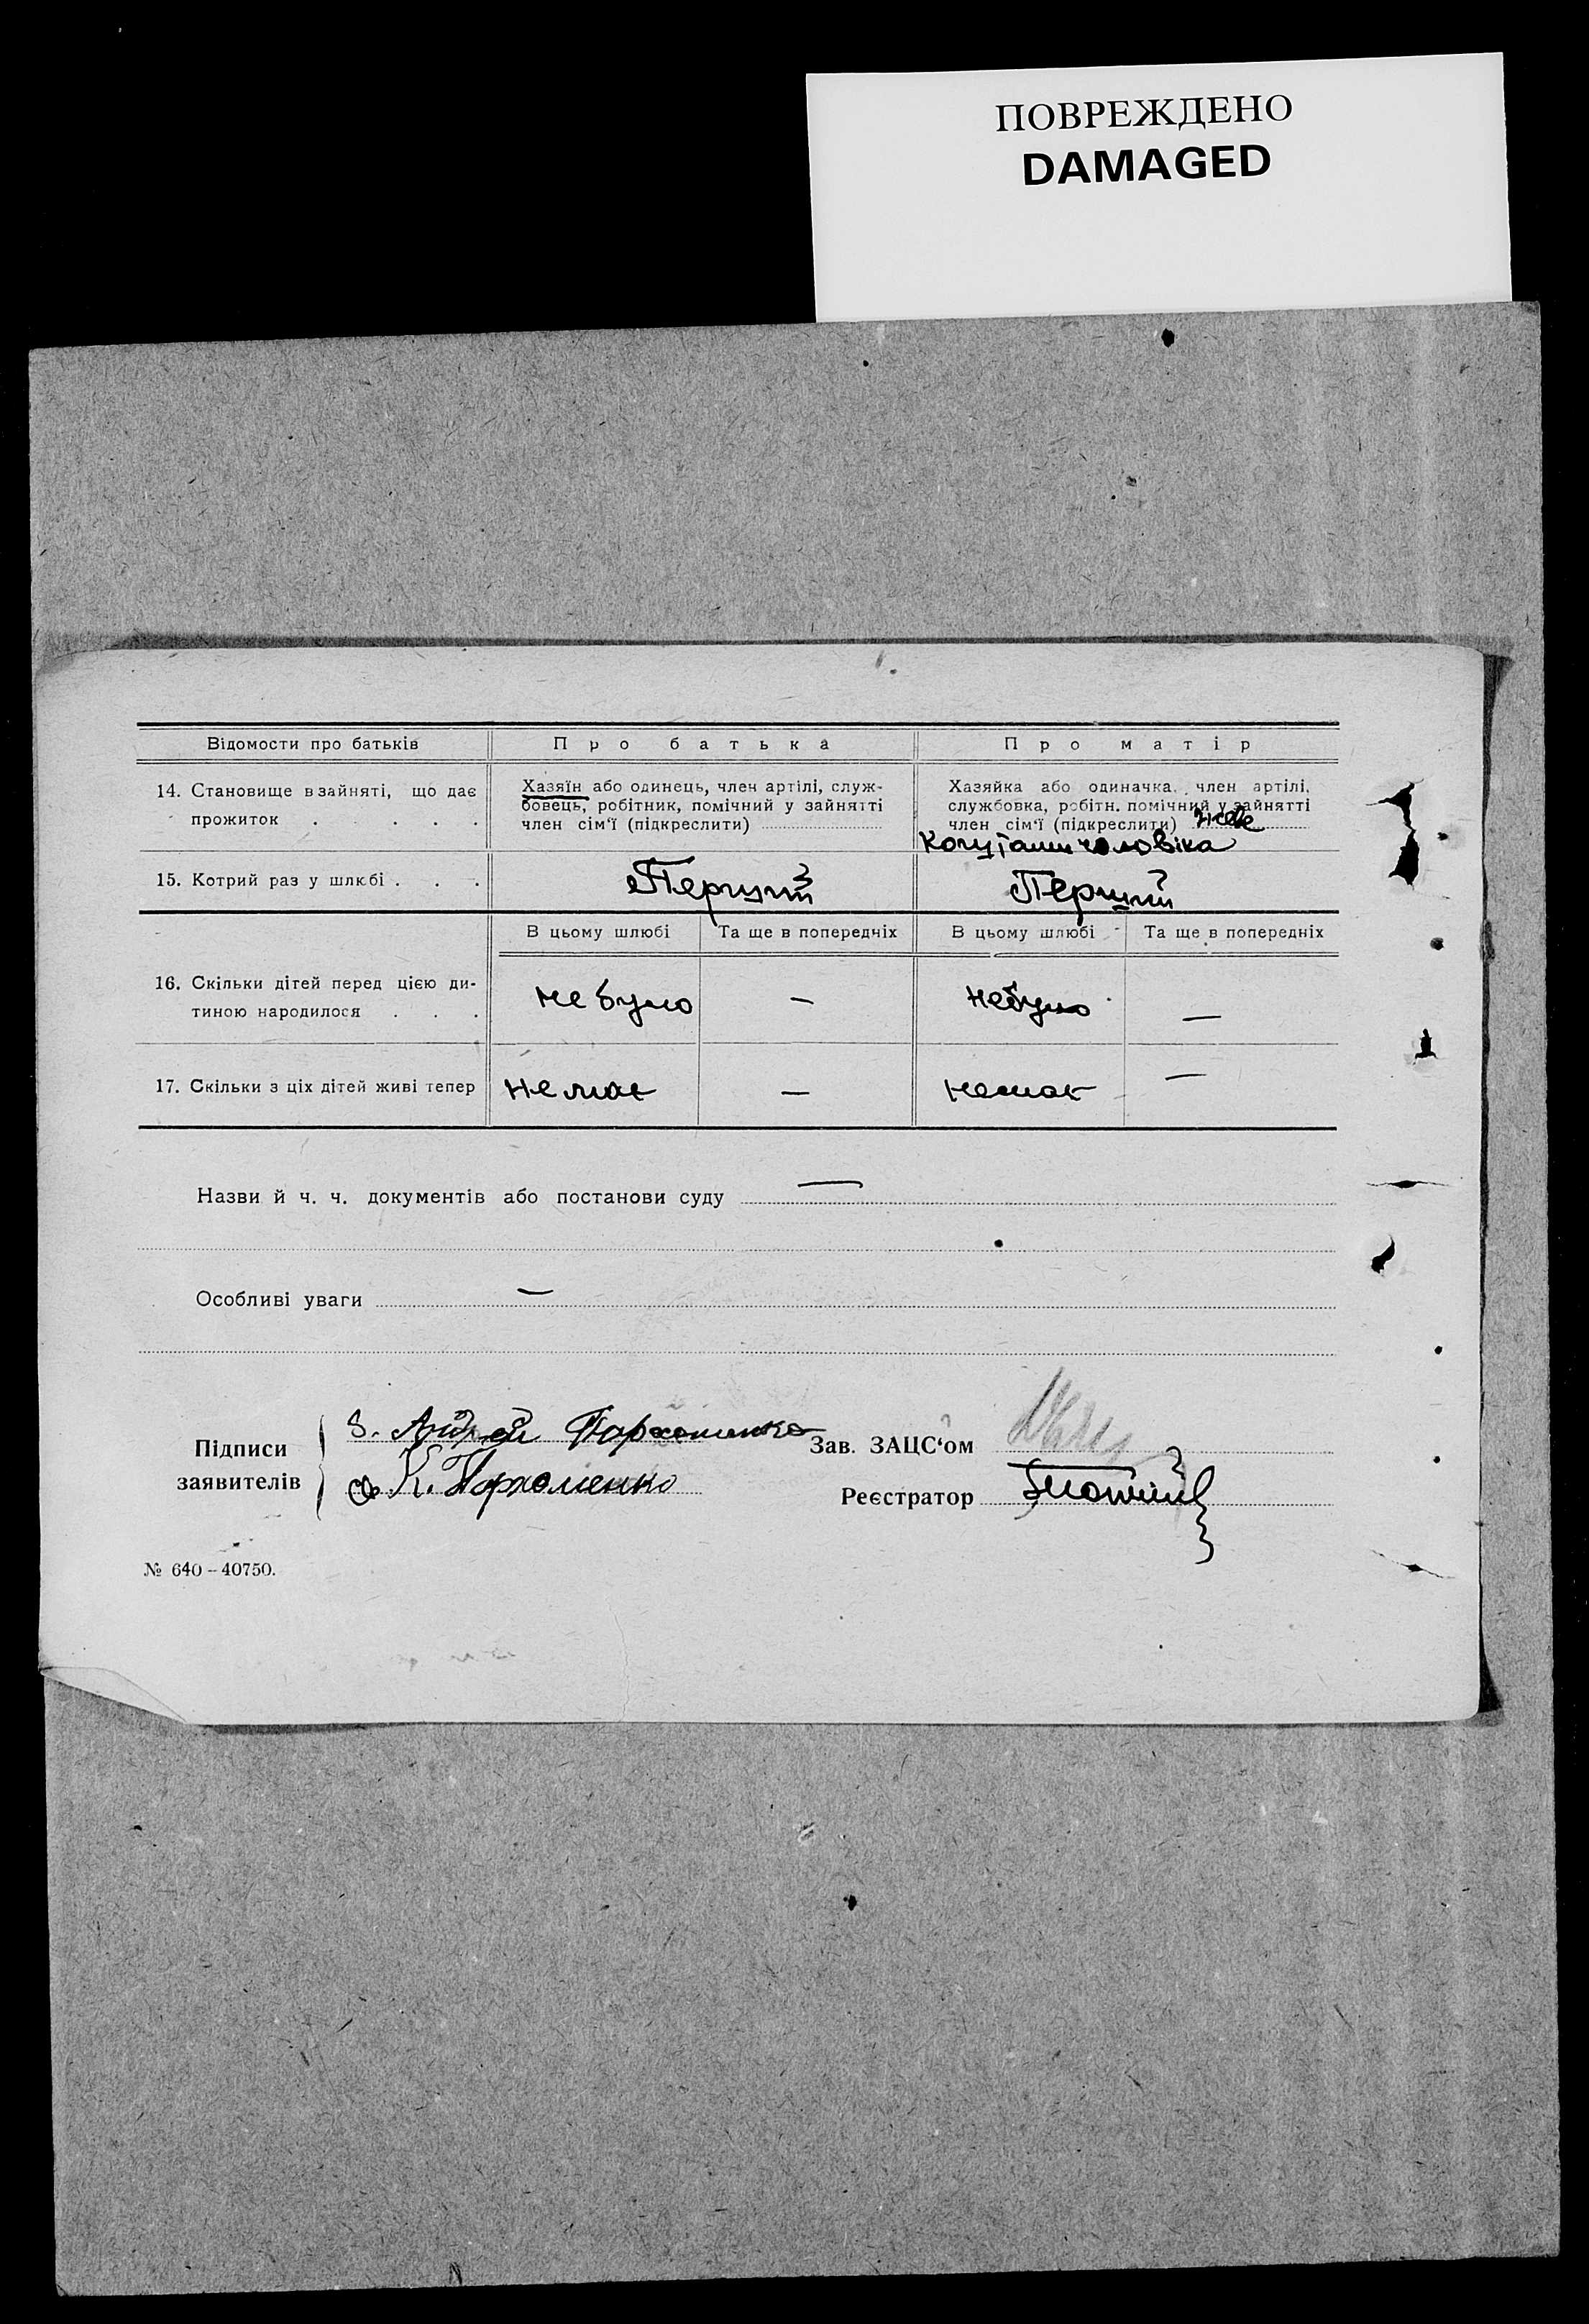 ПОВРЕЖДЕНО
DAMAGED
Відомости про батьків
Про батька
Про матір
14. Становище в зайняті, що дає прожиток . . . .
Хазяїн або одинець, член артілі, служ-
бовець, робітник, помічний у зайнятті
член сім'ї (підкреслити)
Хазяйка або одиначка, член артілі,
службовка, робітн. помічний у зайнятті
член сім'ї (підкреслити) живе
коштами чоловіка
15. Котрий раз у шлюбі . . .
Перший
Перший
В цьому шлюбі
Та ще в попередніх
В цьому шлюбі
Та ще в попередніх
16. Скільки дітей перед цією ди-
тиною народилося . . .
не було
—
не було
—
17. Скільки з ціх дітей живі тепер
немає
—
немає
—
Назви й ч. ч. документів або постанови суду —
Особливі уваги —
Підписи
заявителів
Андрей Пархоменко
К. Пархоменко
Зав. ЗАЦС‘ом
Реєстратор
№ 640 – 40750.